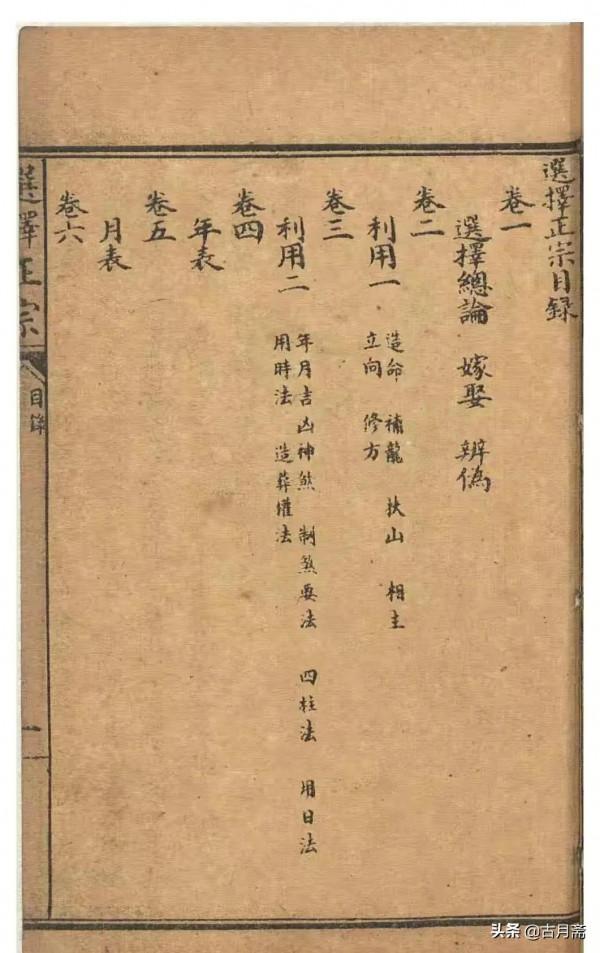 選擇正宗目录
卷一
選擇總論 嫁娶 辨偽
卷二
利用一 造命 補龍 扶山 相主
立向 修方
卷三
利用二 年月吉凶神煞 制煞要法 四柱法 用日法
用時法 造葬權法
卷四
年表
卷五
月表
卷六
選擇正宗
目錄
一
头条 @古月斋